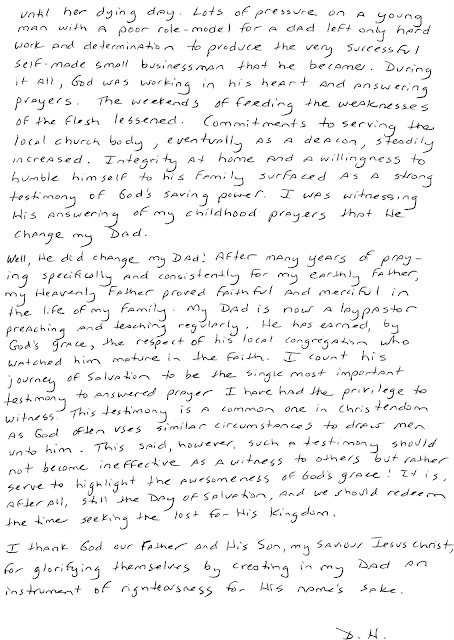 until her dying day. Lots of pressure on a young
man with a poor role-model for a dad left only hard
work and determination to produce the very successful
self-made small businessman that he became. During
it all, God was working in his heart and answering
prayers. The weekends of feeding the weaknesses
of the flesh lessened. Commitments to serving the
local church body, eventually as a deacon, steadily
increased. Integrity at home and a willingness to
humble himself to his family surfaced as a strong
testimony of God's saving power. I was witnessing
His answering of my childhood prayers that He
change my Dad.
Well, He did change my Dad! After many years of pray-
ing specifically and consistently for my earthly father,
my Heavenly Father proved faithful and merciful in
the life of my family. My Dad is now a lay pastor
preaching and teaching regularly. He has earned, by
God's grace, the respect of his local congregation who
watched him mature in the faith. I count his
journey of salvation to be the single most important
testimony to answered prayer I have had the privilege to
witness. This testimony is a common one in Christendom
as God often uses similar circumstances to draw men
unto him. This said, however, such a testimony should
not become ineffective as a witness to others but rather
serve to highlight the awesomeness of God's grace! It is,
after all, still the Day of Salvation, and we should redeem
the time seeking the lost for His Kingdom.
I thank God our Father and His Son, my Saviour Jesus Christ,
for glorifying themselves by creating in my Dad an
instrument of righteousness for His name's sake.
D. H.